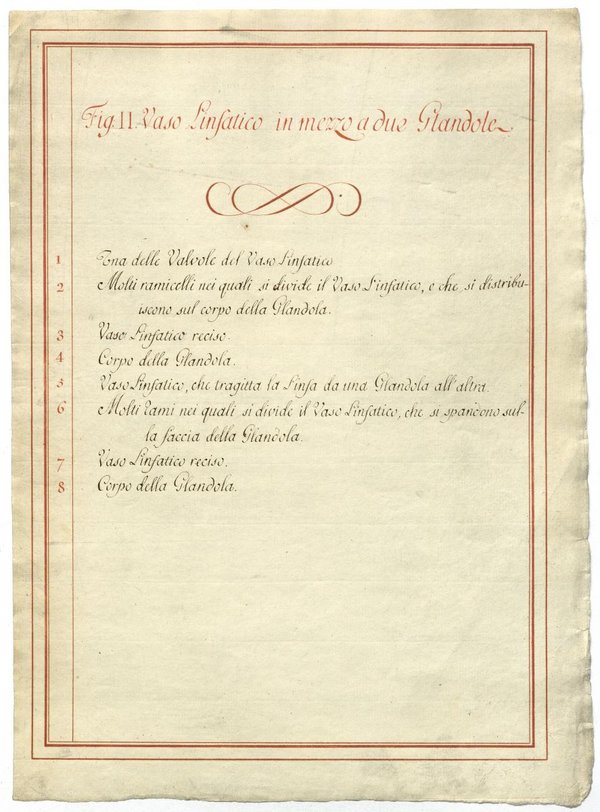 Fig. II. Vaso Linfatico in mezzo a due Glandole
1 Una delle Valvole del Vaso Linfatico
2 Molti ramicelli nei quali si divide il Vaso Linfatico, e che, si distribu-
iscono sul corpo della Glandola.
3 Vaso Linfatico reciso.
4 Corpo della Glandola.
5 Vaso Linfatico, che tragitta la Linfa da una Glandola all'altra.
6 Molti Rami nei quali si divide il Vaso Linfatico, che si spandono sul-
la faccia della Glandola.
7 Vaso Linfatico reciso.
8 Corpo della Glandola.